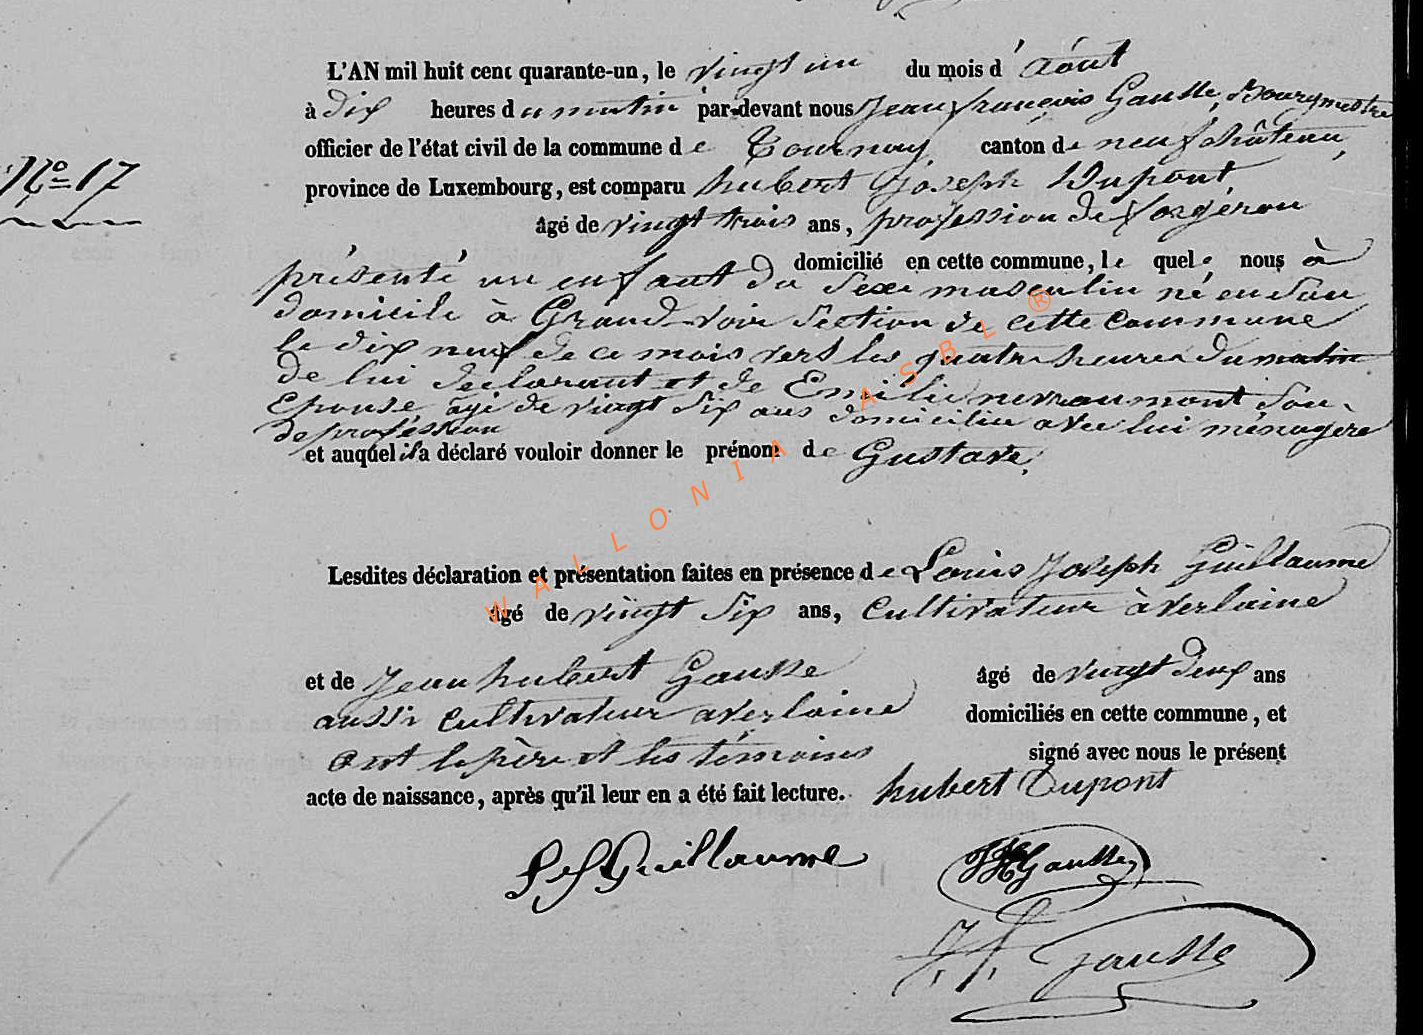 L'AN mil huit cent quarante-un, le vingt un du mois d'août
à dix heures du matin par-devant nous Jean françois Gausse, Bourgmestre
officier de l'état civil de la commune de Tournay, canton de neufchâteau,
N° 17
province de Luxembourg, est comparu hubert Joseph Dupont,
âgé de vingt trois ans, profession de forgeron
domicilié en cette commune, le quel nous à
présenté un enfant du sexe masculin né en son
domicile à Grand-voir section de cette commune
le dix neuf de ce mois vers les quatre heures du matin
de lui déclarant et de Emilie nevraumont son
Epouse, âgé de vingt six ans domiciliée avec lui ménagère
de profession
et auquel il a déclaré vouloir donner le prénom de Gustave.
Lesdites déclaration et présentation faites en présence de Louis Joseph Guillaume
âgé de vingt six ans, cultivateur à verlaine
et de Jean hubert Gausse âgé de vingt deux ans
aussi cultivateur a verlaine domiciliés en cette commune, et
ont le père et les témoins signé avec nous le présent
acte de naissance, après qu'il leur en a été fait lecture. hubert Dupont
Guillaume
JH Gausse
J. f. Gausse
WALLONIA ASBL ®